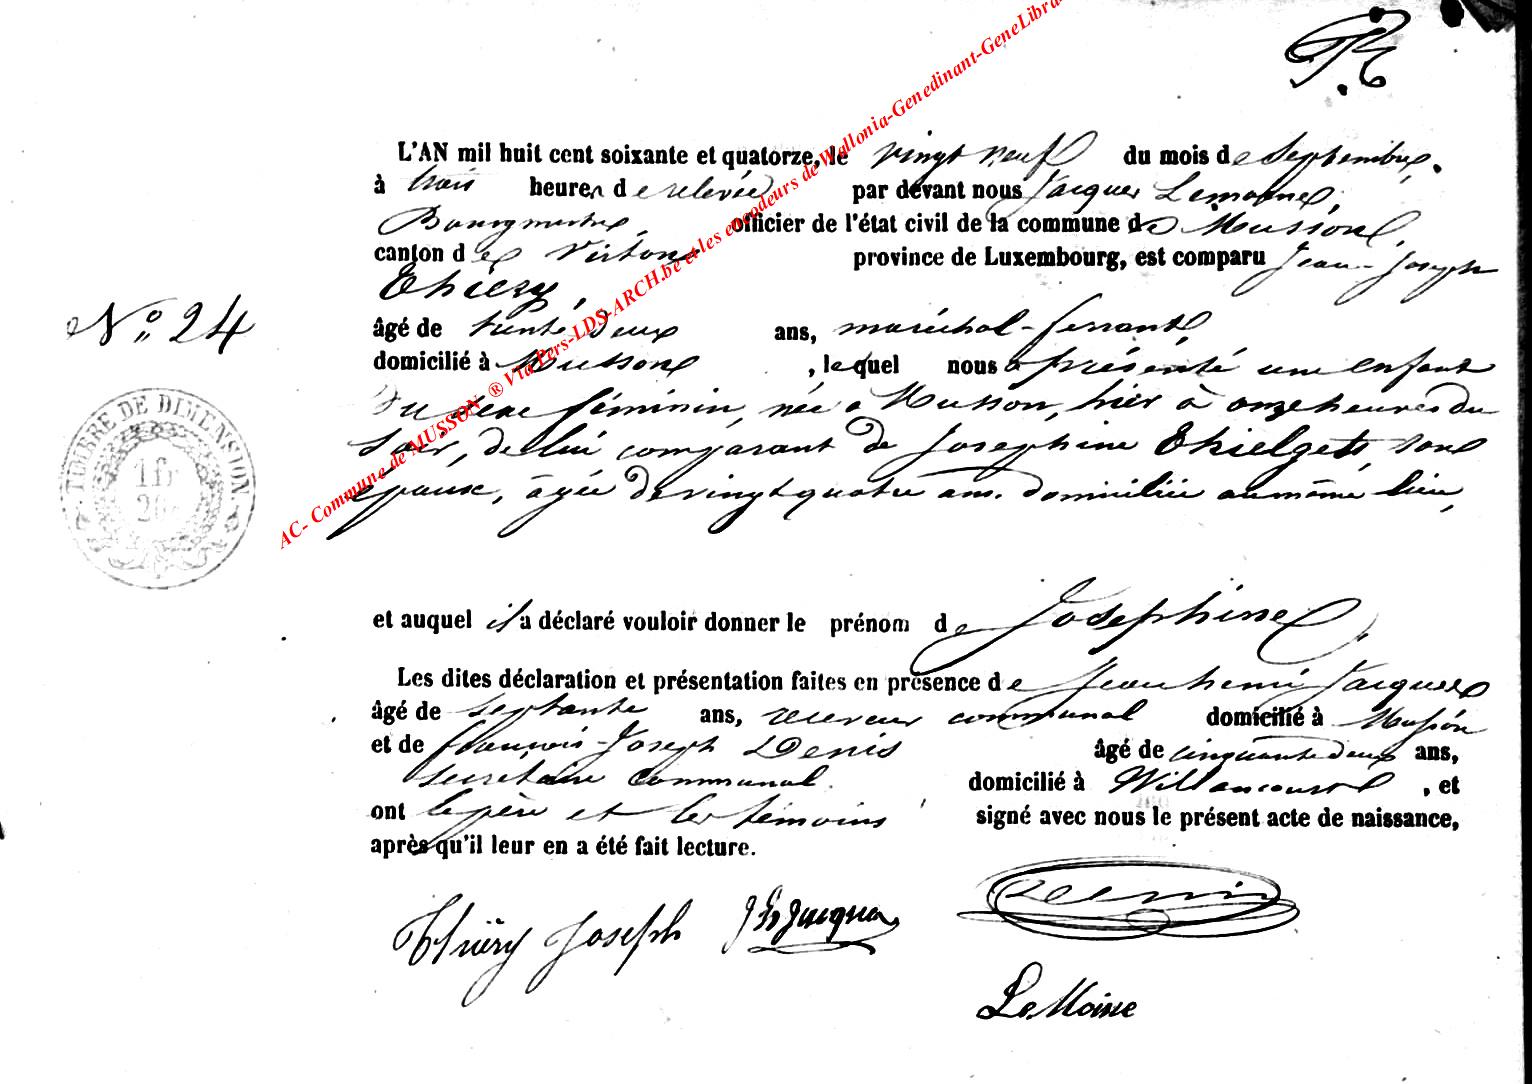 L'AN mil huit cent soixante et quatorze, le vingt neuf du mois de Septembre,
à trois heures de relevée par devant nous Jacques Lemoine,
Bourgmestre, officier de l'état civil de la commune de Musson,
canton de Virton province de Luxembourg, est comparu Jean-Joseph
Thiery,
N° 24
âgé de trente deux ans, maréchal-ferrant
domicilié à Musson, lequel nous a présenté une enfant
du sexe féminin, née à Musson, hier à onze heures du
soir, de lui comparant de Josephine Thielgets, son
épouse, âgée de vingt quatre ans. domiciliée au même lieu,
TIMBRE DE DIMENSION
1 fr
20
et auquel il a déclaré vouloir donner le prénom de Josephine
Les dites déclaration et présentation faites en présence de Jean henri Jacques
âgé de septante ans, receveur communal domicilié à Musson
et de françois-Joseph Denis âgé de cinquante deux ans,
secrétaire communal. domicilié à Willancourt, et
ont le père et les témoins signé avec nous le présent acte de naissance,
après qu'il leur en a été fait lecture.
Thiéry Joseph JhJacques
LeMoine
AC- Commune de MUSSON ® Via Pers-LDS-ARCH.be et les encodeurs de Wallonia-Genedinant-GeneLibra